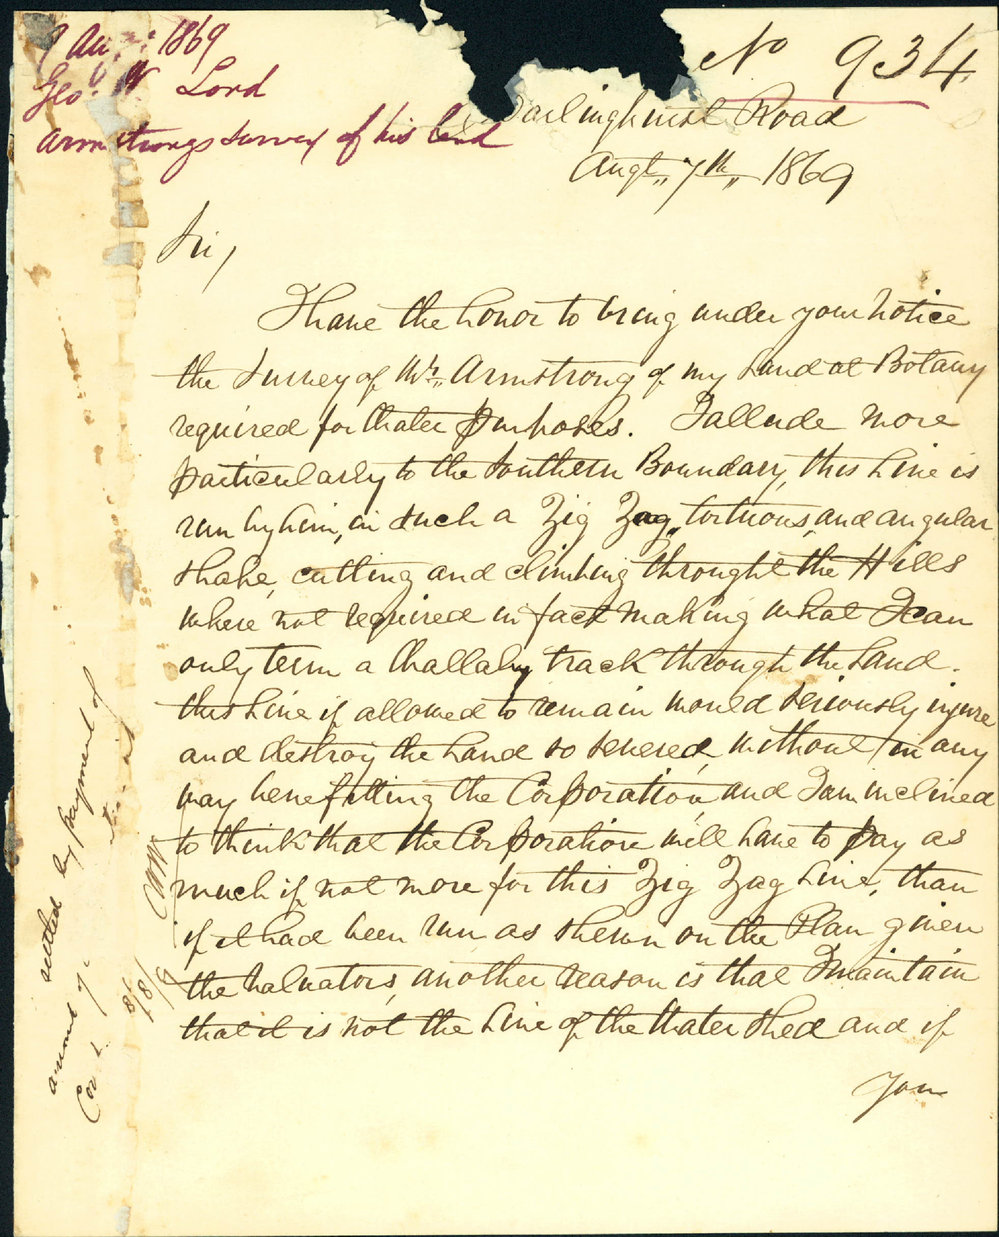 9 Aug: 1869
Geo. W. Lord
Armstrongs survey of his land
No 934
Darlinghurst Road
Augt,, 7th,, 1869
Sir,
I have the honor to bring under your notice
the Survey of Mr,, Armstrong of my Land at Botany
required for Water purposes. I allude more
particularly to the Southern Boundary, this Line is
run by him, in such a Zig Zag, tortuous, and angular
shape, cutting and climbing throught the Hills
where not required in fact making what I can
only term a Wallaby track through the Land.
this Line if allowed to remain would seriously injure
and destroy the Land so severed, without in any
way benefitting the Corporation, and I am inclined
to think that the Corporation will have to pay as
much if not more for this Zig Zag Line, than
if it had been run as shewn on the Plan given
the Valuators, another reason is that I maintain
that it is not the Line of the Water Shed and if
You
settled by payment of
amount